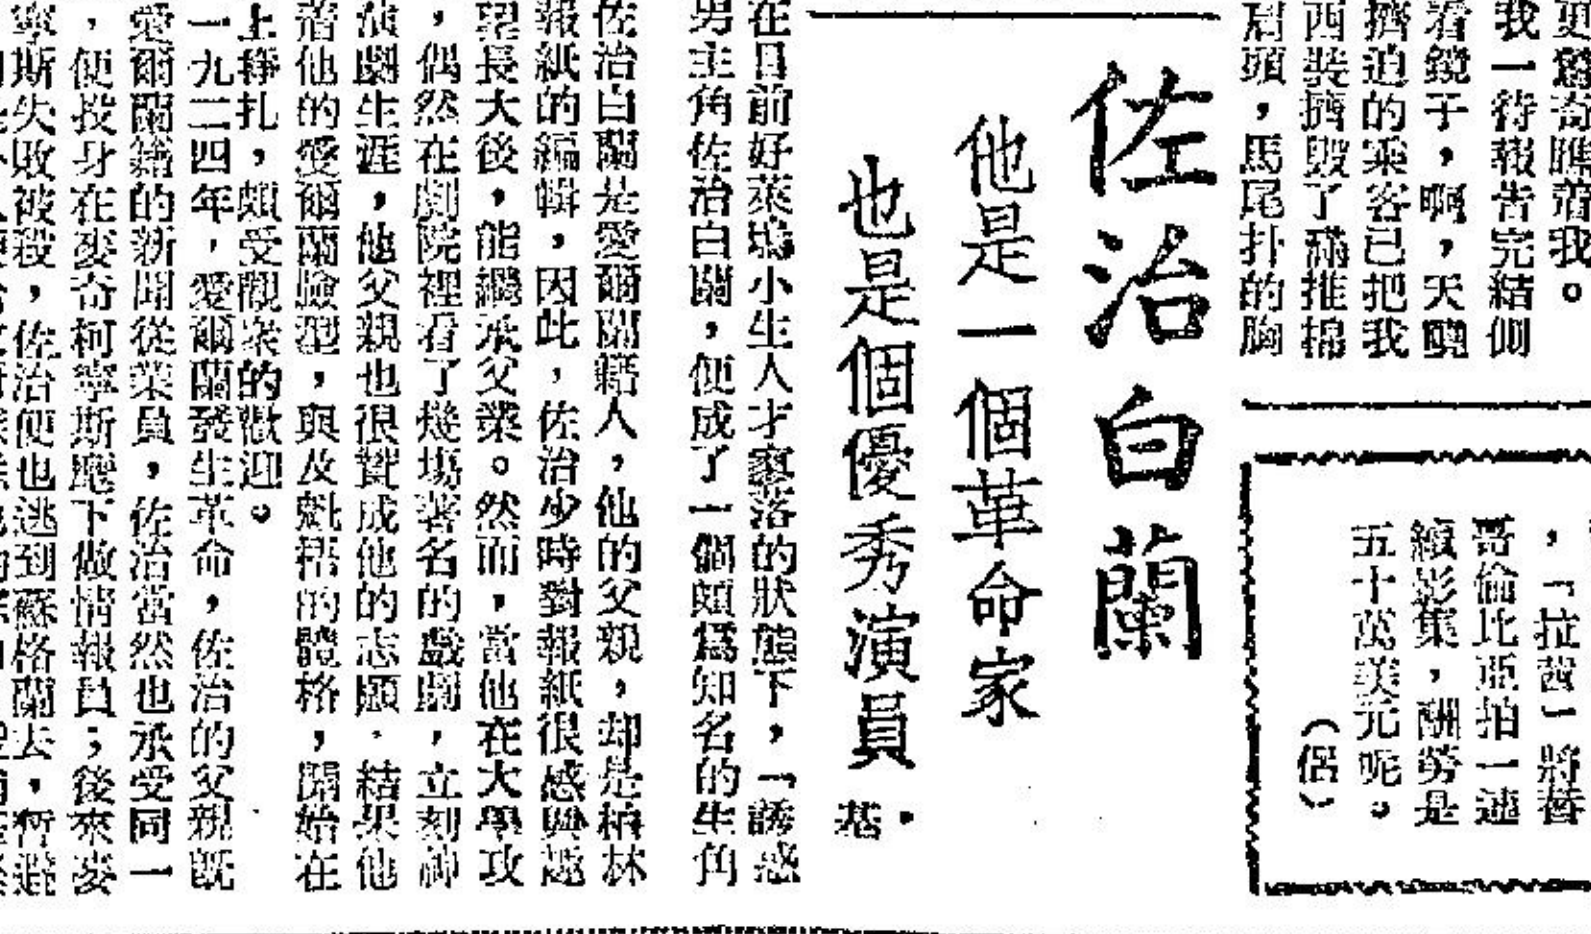 我一待報告完結側
看鏡子，啊，天曉
擠迫的乘客已把我
西裝擠毀了滿推棉
肩頭，馬尾扑的胸
將替
哥倫比亞拍一連
續影集，酬勞是
五十萬美元呢。
（侶）
佐治白蘭
他是一個革命家
也是個優秀演員
在目前好萊塢小生人才寥落的狀態下，「誘惑
男主角佐治白蘭，便成了一個頗爲知名的生角
佐治白蘭是愛爾蘭籍人，他的父親，却是柏林
報紙的編輯，因此，佐治少時對報紙很感興趣
長大後，能繼承父業。然而，當他在大學攻
，偶然在劇院裡看了幾場著名的戲劇，立刻神
演劇生涯，他父親也很贊成他的志願．結果他
着他的愛爾蘭臉型，與及魁梧的體格，開始在
上掙扎，頗受觀衆的歡迎。
一九二四年，愛爾蘭發生革命，佐治的父親既
愛爾蘭籍的新聞從業員，佐治當然也承受同一
，便投身在麥奇柯寧斯麾下做情報員；後來麥
寧斯失敗被殺，佐治便也逃到蘇格蘭去，暫避